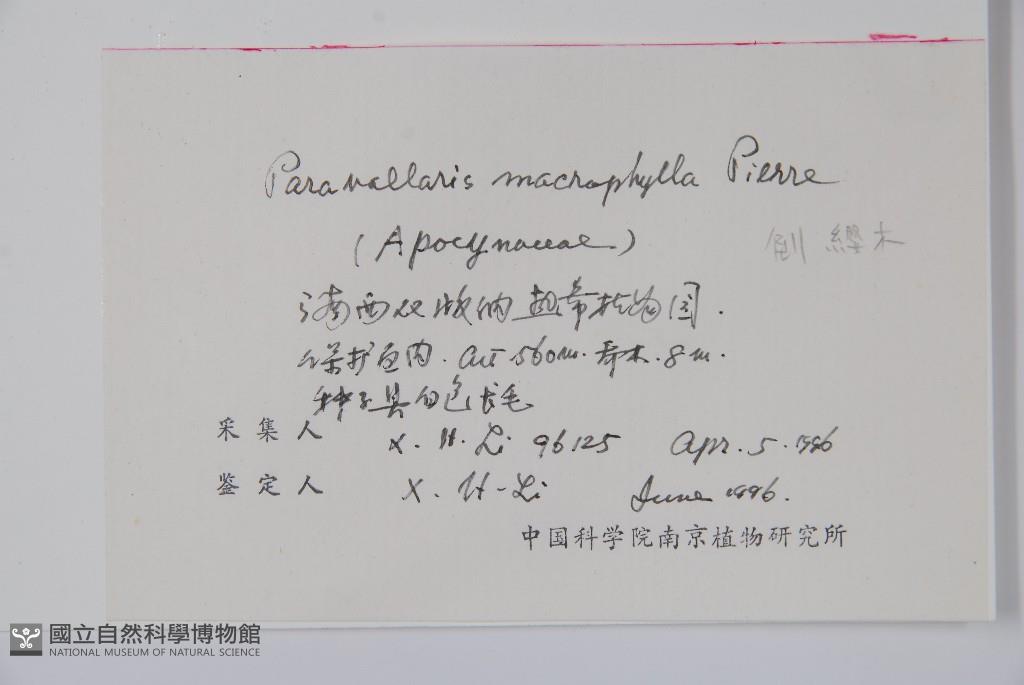 Paravallaris macrophylla Pierre
(Apocynaceae)
倒纓木
西双版纳热带植物园.
保护区内. alt 560m. 乔木. 8m.
种子具白色长毛
采集人 X. H. Li 96125 Apr. 5. 1996
鉴定人 X. H-Li June 1996.
中国科学院南京植物研究所
國立自然科學博物館
NATIONAL MUSEUM OF NATURAL SCIENCE